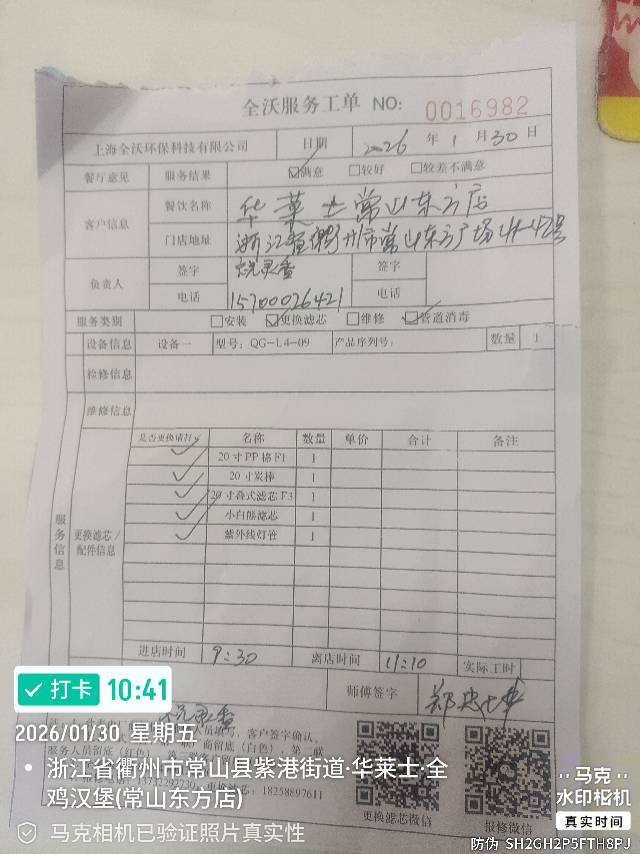 全沃服务工单 NO: 0016982
上海全沃环保科技有限公司 日期 2026 年 1 月 30 日
餐厅意见 服务结果 ☑满意 □较好 □较差不满意
客户信息 餐饮名称 华莱士常山东方店
门店地址 浙江省衢州市常山东方广场
负责人 签字 签字
电话 15700026421 电话
服务类别 □安装 ☑更换滤芯 □维修 ☑管道消毒
设备信息 设备一 型号: QG-L4-09 产品序列号: 数量 1
检修信息
维修信息
服务信息
更换滤芯/配件信息
是否更换请打✓ 名称 数量 单价 合计 备注
✓ 20寸PP棉F1 1
✓ 20寸炭棒 1
✓ 20寸叠式滤芯F3 1
✓ 小白熊滤芯 1
✓ 紫外线灯管 1
进店时间 9:30 离店时间 11:10 实际工时
师傅签字
客户签字确认。
服务人员留底(红色)
更换滤芯微信 报修微信
打卡 10:41
2026/01/30 星期五
浙江省衢州市常山县紫港街道·华莱士·全
鸡汉堡(常山东方店)
马克相机已验证照片真实性
马克
水印相机
真实时间
防伪 SH2GH2P5FTH8PJ